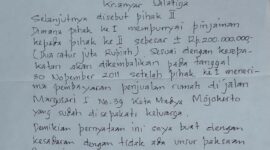 Kranyar Salatiga
Selanjutnya disebut pihak II
Dimana pihak ke I mempunyai pinjaman
kepada pihak ke II sebesar ± Rp 200.000.000,-
(Dua ratus juta Rupiah) Sesuai dengan kesepa-
katan akan dikembalikan pada tanggal
30 Nopember 2011 setelah pihak ke I meneri-
ma pembayaran penjualan rumah di jalan
Margosari I No.39 Kota Madya Mojokerto
yang sudah disepakati keluarga.
Demikian pernyataan ini saya buat dengan
kesadaran dengan tidak ada unsur paksaan